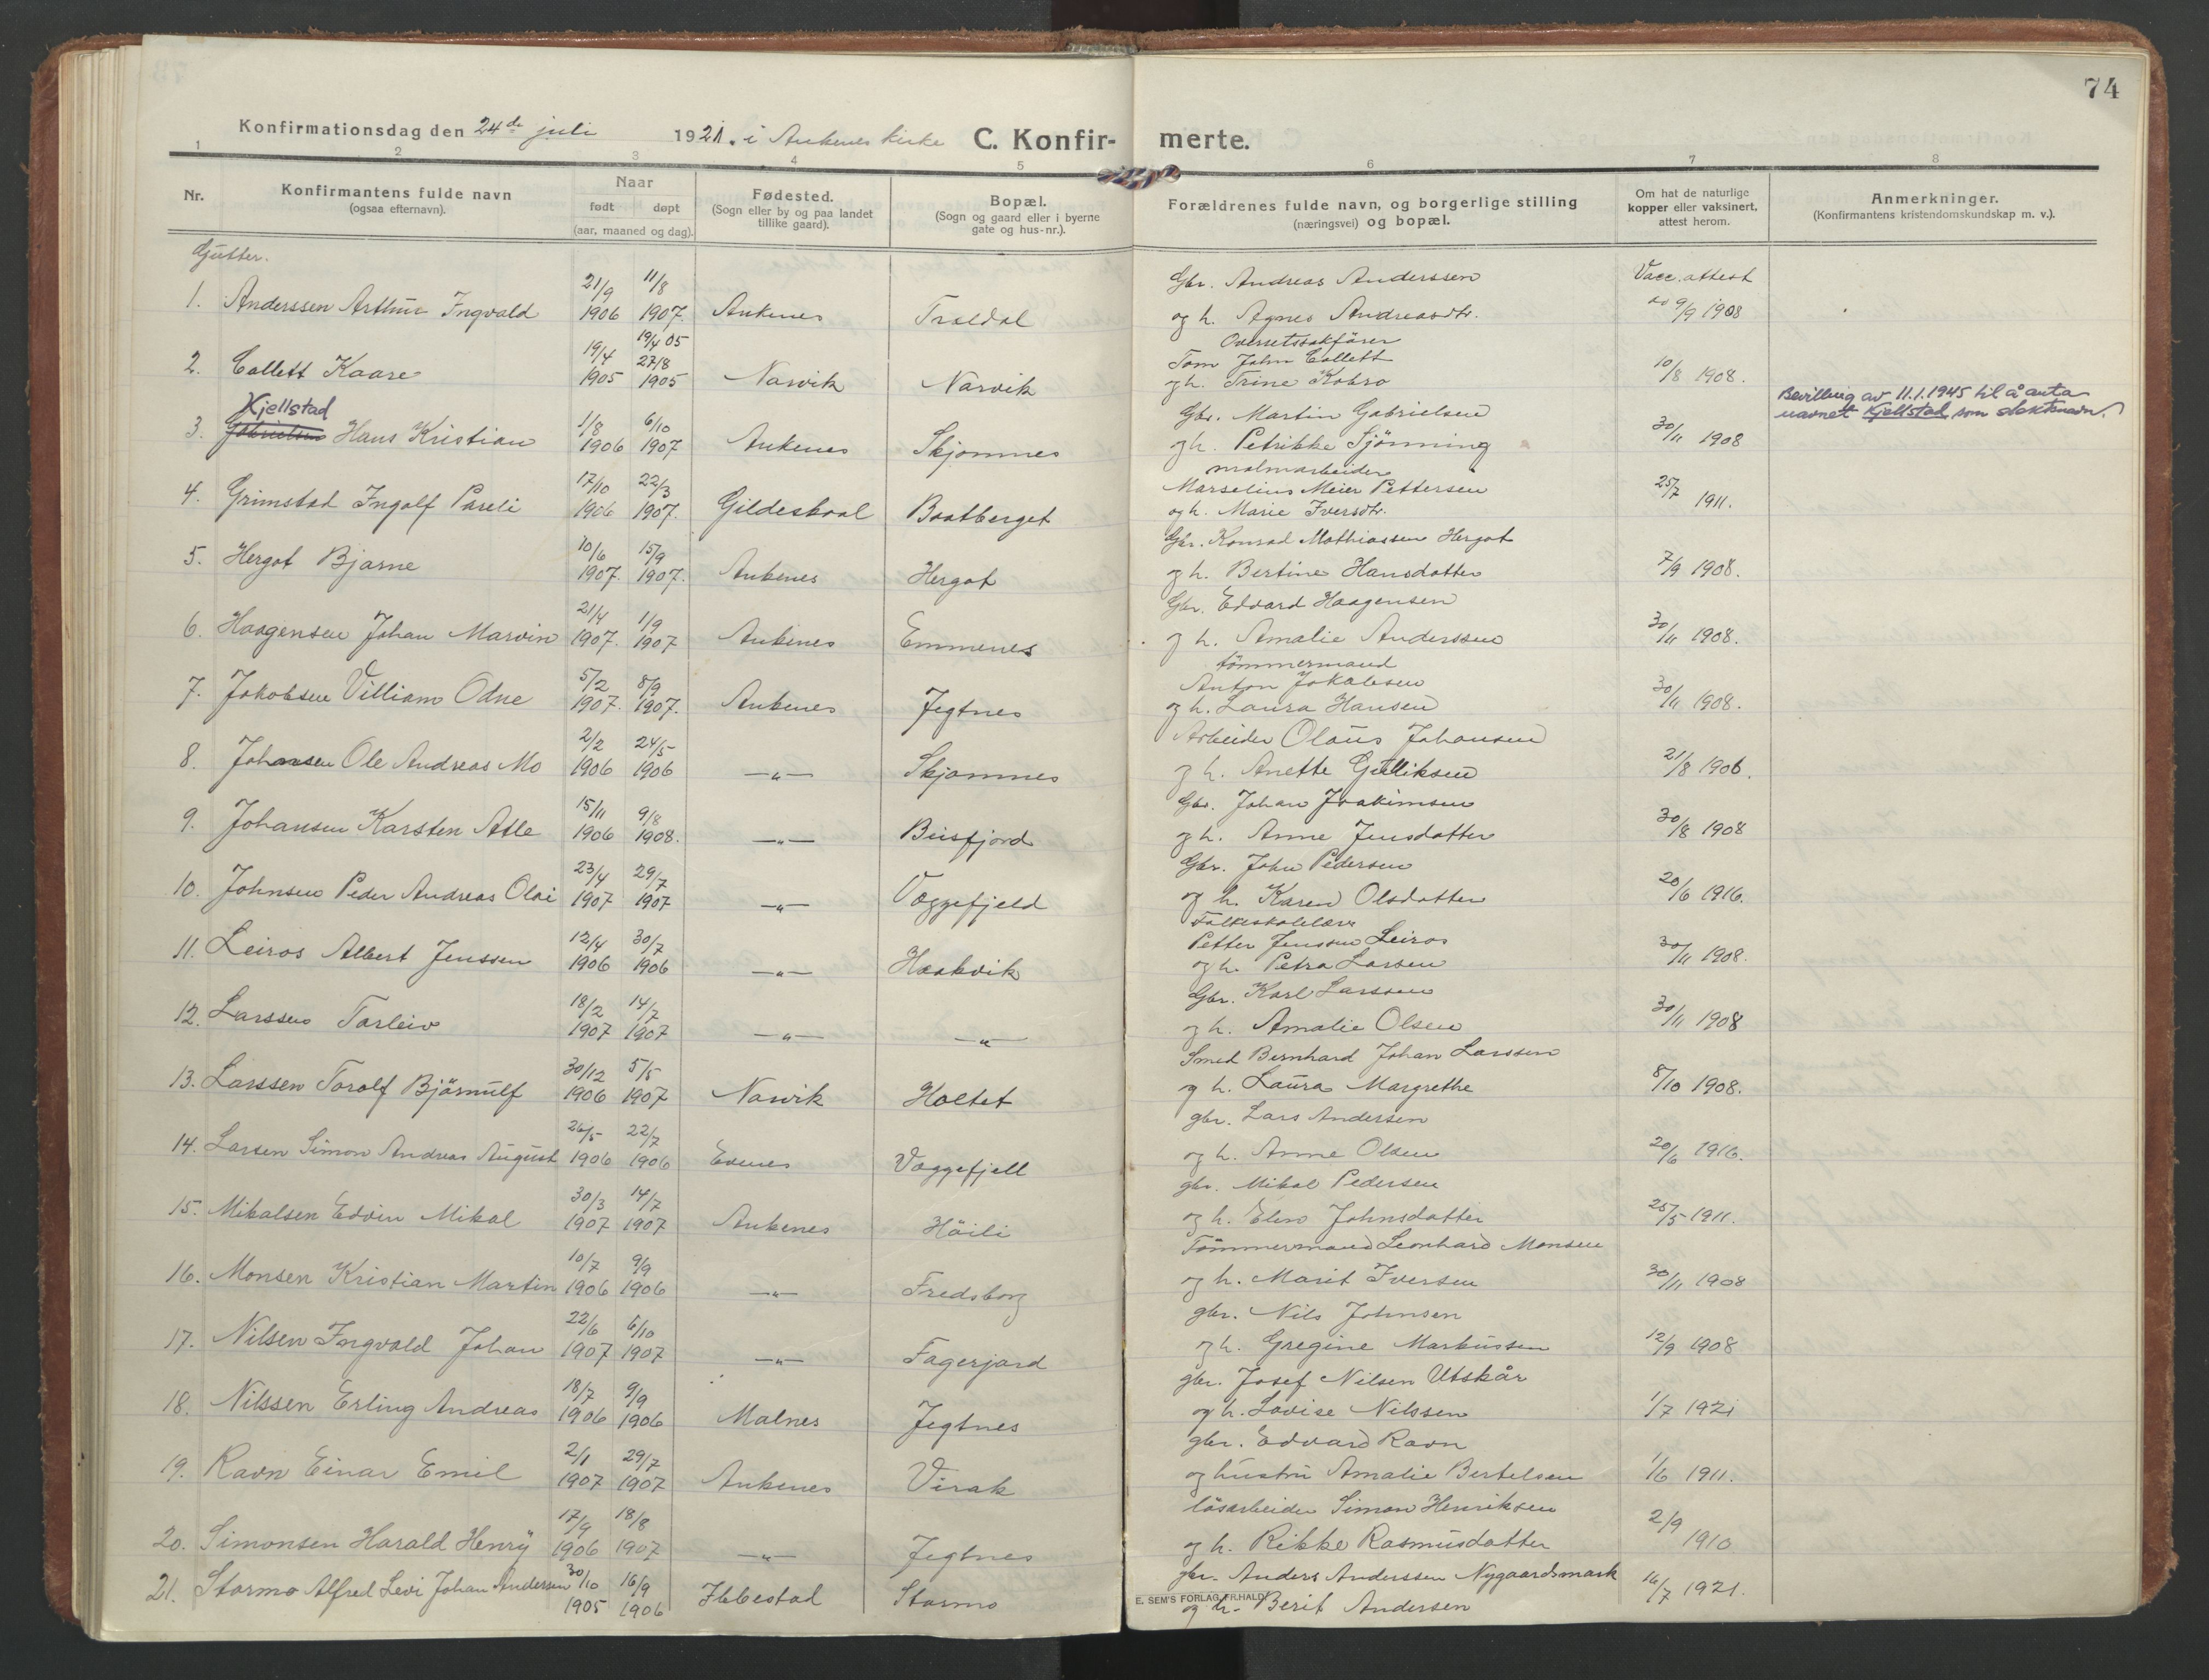 74
Konfirmationsdag den 24de juli 1921. i Ankenes kirke C. Konfir- merte.
1 2 3 4 5 6 7 8
Nr. Konfirmantens fulde navn (ogsaa efternavn). Naar født døpt (aar, maaned og dag). Fødested. (Sogn eller by og paa landet tillike gaard). Bopæl. (Sogn og gaard eller i byerne gate og hus-nr.). Forældrenes fulde navn, og borgerlige stilling (næringsvei) og bopæl. Om hat de naturlige kopper eller vaksinert, attest herom. Anmerkninger. (Konfirmantens kristendomskundskap m. v.).
Gutter.
1. Anderssen Arthur Ingvald 21/9 1906 11/8 1907 Ankenes Traldal Gbr. Andreas Anderssen og h. Agnes Andreasdtr. Vacc. attest 9/9 1908
2. Collett Kaare 19/4 1905 19/4 05 27/8 1905 Narvik Narvik Overretssakfører Tom John Collett og h. Trine Kobro 10/8 1908.
3. Gabrielsen Kjellstad Hans Kristian 1/8 1906 6/10 1907 Ankenes Skjomnes Gbr. Martin Gabrielsen og h. Petrikke Sjönning 30/11 1908 Bevilling av 11.1.1945 til å anta navnet Kjellstad som slektsnavn.
4. Grimstad Ingolf Pareli 17/10 1906 22/3 1907. Gildeskaal Baatberget malmarbeider Marselius Meier Pettersen og h. Marie Iversdtr. 25/7 1911.
5. Hergot Bjarne 10/6 1907. 15/9 1907. Ankenes Hergot Gbr. Konrad Mathiassen Hergot og h. Bertine Hansdatter 7/9 1908.
6. Haagensen Johan Marvin 21/4 1907. 1/9 1907 Ankenes Emmenes Gbr. Edvard Haagensen og h. Amalie Anderssen 30/11 1908.
7. Jakobsen Villiam Odne 5/2 1907. 8/9 1907. Ankenes Jegtnes tömmermand Anton Jakobsen og h. Laura Hansen 30/11 1908.
8. Johansen Ole Andreas Mo 2/2 1906 24/5 1906 —"— Skjomnes Arbeider Olaus Johansen og h. Anette Gulliksen 21/8 1906.
9. Johansen Karsten Atle 15/11 1906 9/8 1908. —"— Beisfjord Gbr. Johan Joakimsen og h. Anne Jensdatter 30/8 1908
10. Johnsen Peder Andreas Olai 23/4 1907 29/7 1907 —"— Væggefjeld Gbr. John Pedersen og h. Karen Olsdatter 20/6 1916.
11. Leiros Albert Jenssen 12/4 1906 30/7 1906 —"— Haakvik Folkeskolelærer Petter Jenssen Leiros og h. Petra Larsen 30/11 1908.
12. Larssen Torleiv 18/2 1907 14/7 1907 —"— —"— Gbr. Karl Larssen og h. Amalie Olsen 30/11 1908
13. Larssen Torolf Bjärnulf 30/12 1906 5/5 1907 Narvik Holtet Smed Bernhard Johan Larssen og h. Laura Margrethe 8/10 1908.
14. Larsen Simon Andreas August 26/5 1906 22/7 1906 Evenes Væggefjell gbr. Lars Andersen og h. Anne Olsen 20/6 1916.
15. Mikalsen Edvin Mikal 30/3 1907 14/7 1907 Ankenes Höili gbr. Mikal Pedersen og h. Elen Johnsdatter 25/5 1911.
16. Monsen Kristian Martin 10/7 1906 9/9 1906 —"— Fredsborg Tömmermand Leonhard Monsen og h. Marit Iversen 30/11 1908
17. Nilsen Ingvald Johan 22/6 1907 6/10 1907 —"— Fagerjord gbr. Nils Johnsen og h. Gregine Markussen 12/9 1908
18. Nilssen Erling Andreas 18/7 1906 9/9 1906 Malnes Jegtnes gbr. Josef Nilsen Utskår og h. Lovise Nilssen 1/7 1921
19. Ravn Einar Emil 2/1 1907 29/7 1907 Ankenes Virak gbr. Edvard Ravn og hustru Amalie Bertelsen 1/6 1911.
20. Simonsen Harald Henry 17/9 1906 18/8 1907 —"— Jegtnes lösarbeider Simon Henriksen og h. Rikke Rasmusdatter 2/9 1910
21. Stormo Alfred Levi Johan Andersen 30/10 1905 16/9 1906 Ibbestad Stormo gbr. Anders Anderssen Nygaardsmark og h. Berit Andersen 16/7 1921.
E. SEM'S FORLAG, FR.HALD